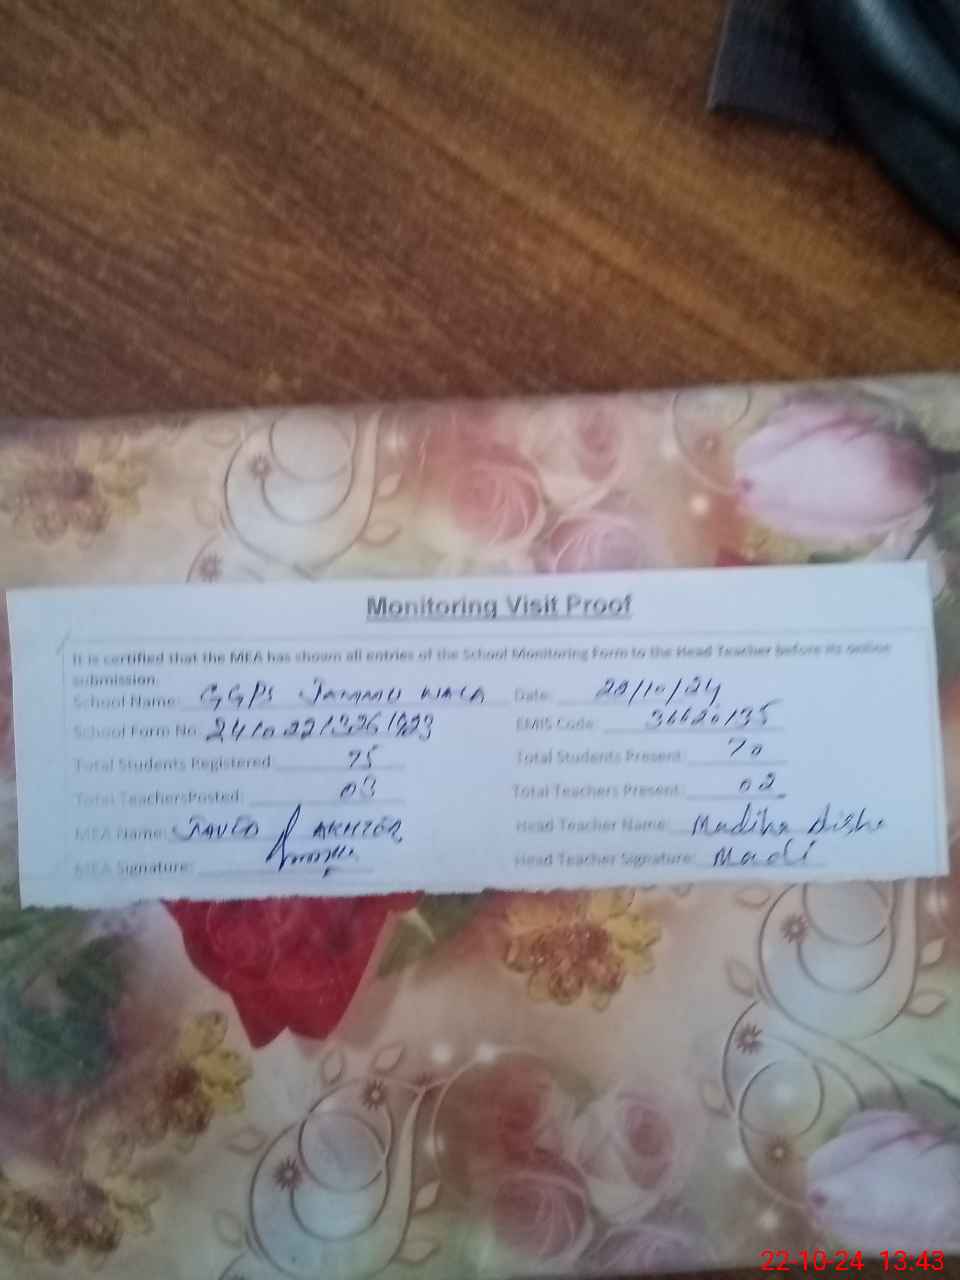 Monitoring Visit Proof
It is certified that the MEA has shown all entries of the School Monitoring Form to the Head Teacher before its online
submission.
School Name: GGPS JAMMU WALA Date: 22/10/24
School Form No: EMIS Code: 36620135
Total Students Registered: 75 Total Students Present: 70
Total TeachersPosted: 03 Total Teachers Present: 02
MEA Name: JAVED AKHTER Head Teacher Name: Madiha Aisha
MEA Signature: Head Teacher Signature: Madi
22-10-24 13:43